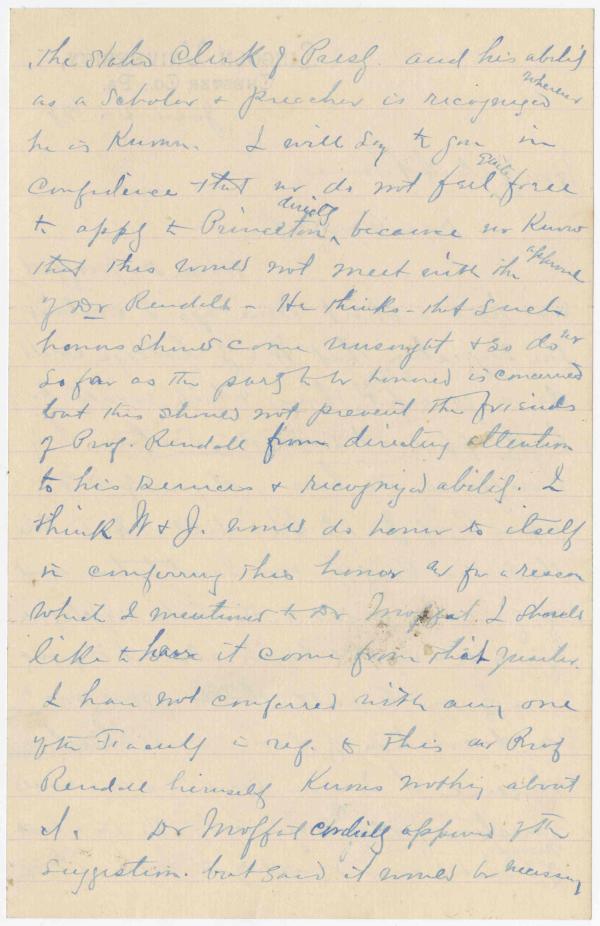 the Stated Clerk of Presby. and his ability
as a Scholar & preacher is recognized wherever
he is Known. I will say to you in
confidence that we do not feel quite free
to apply to Princeton directly, because we Know
that this would not meet with the approval
of Dr Rendall - He thinks that such
honors should come unsought & so do we
So far as the party to be honored is concerned
but this should not prevent the friends
of Prof. Rendall from directing attention
to his services & recognized ability. I
think W & J. would do honor to itself
in conferring this honor and for a reason
which I mentioned to Dr Moffat, I should
like to have it come from that quarter.
I have not conferred with any one
of the Faculty in ref. to this and Prof
Rendall himself Knows nothing about
it. Dr Moffat cordially approved of the
suggestion. but said it would be necessary